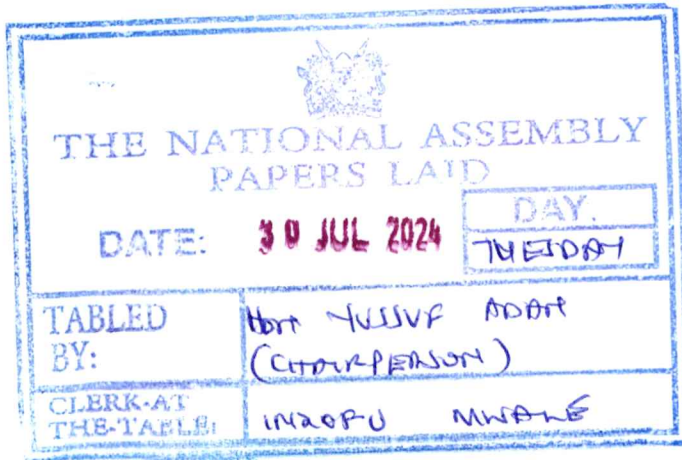 THE NATIONAL ASSEMBLY
PAPERS LAID
DATE: 30 JUL 2024
DAY.
TUESDAY
TABLED
BY:
Hon YUSSUF ADAN
(CHAIRPERSON)
CLERK-AT
THE-TABLE:
INZOFU MWALE